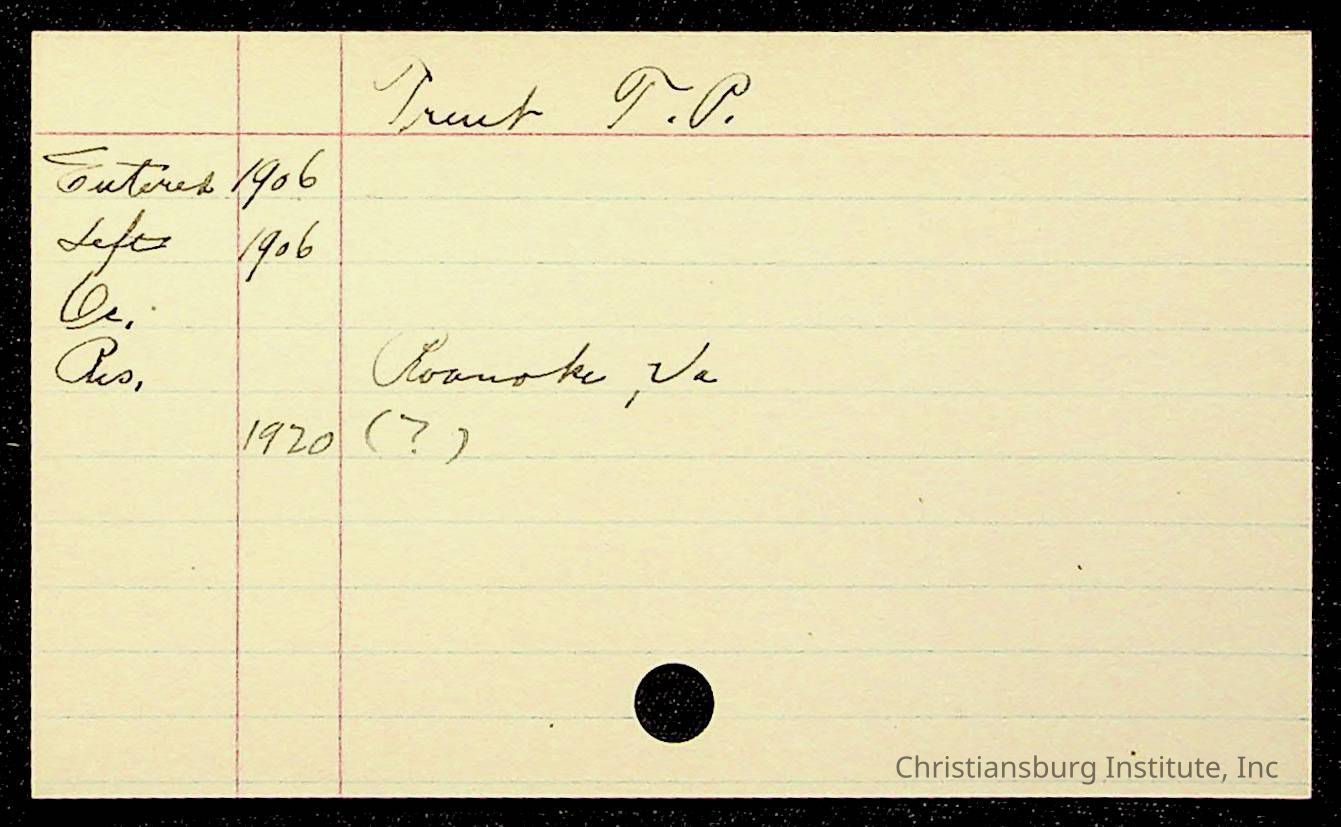 Trent T.P.
Entered 1906
Left 1906
Oc.
Res. Roanoke, Va
1920 (?)
Christiansburg Institute, Inc